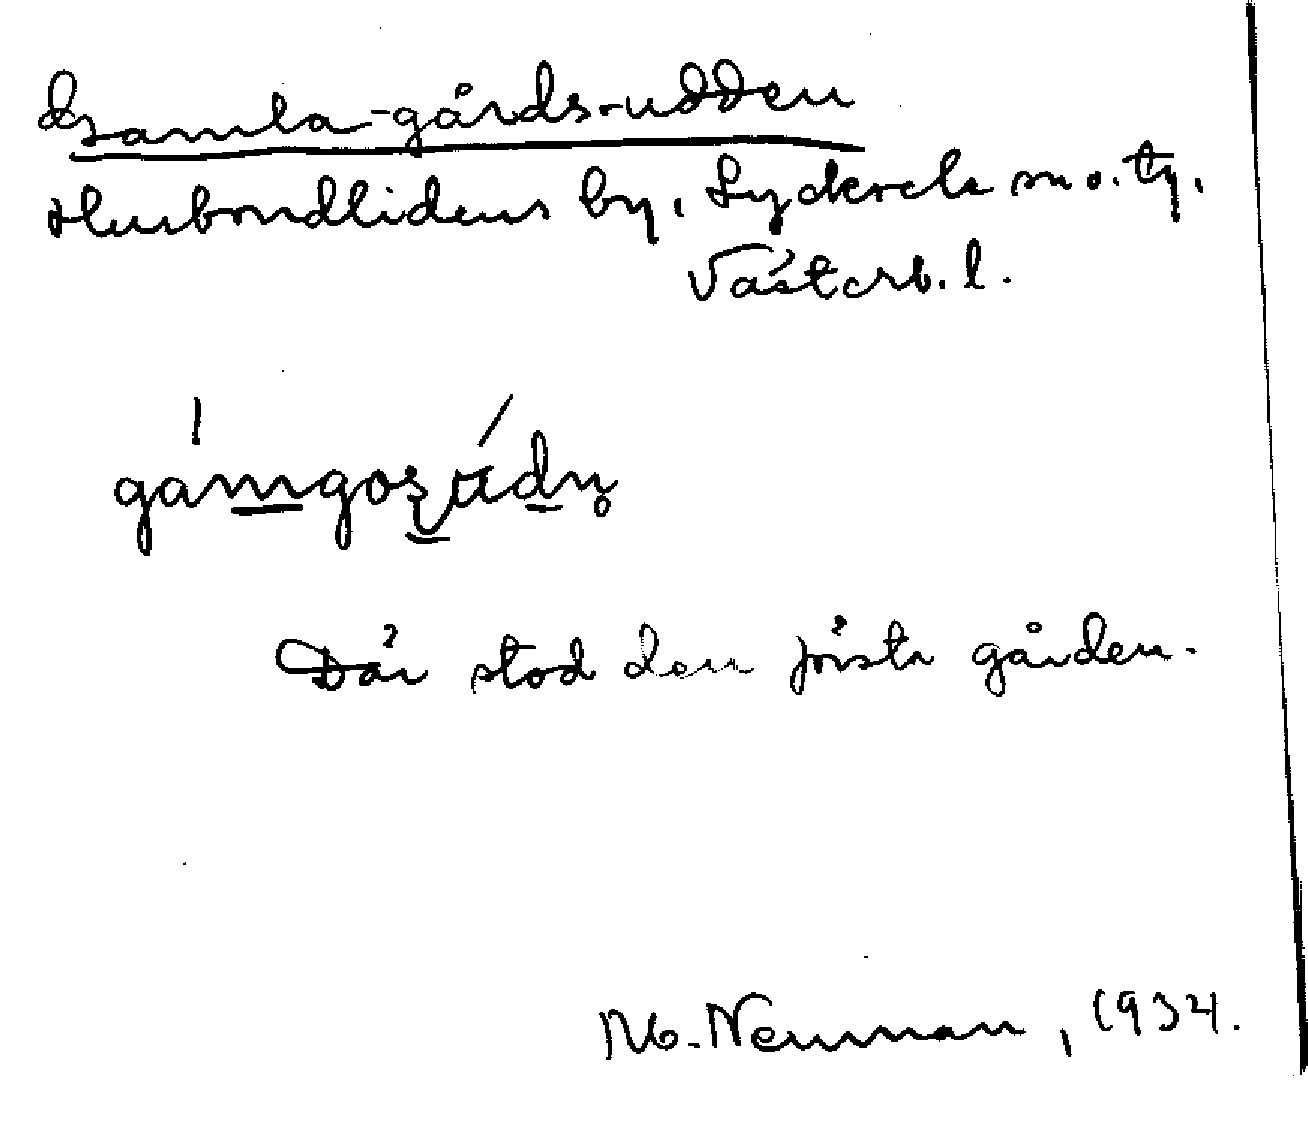 Gamla-gårds-udden
Husbondlidens by, Lycksele sn o. tg.
Västerb. l.
gámgoʂúdn̥
Där stod den första gården.
M. Neuman, 1934.